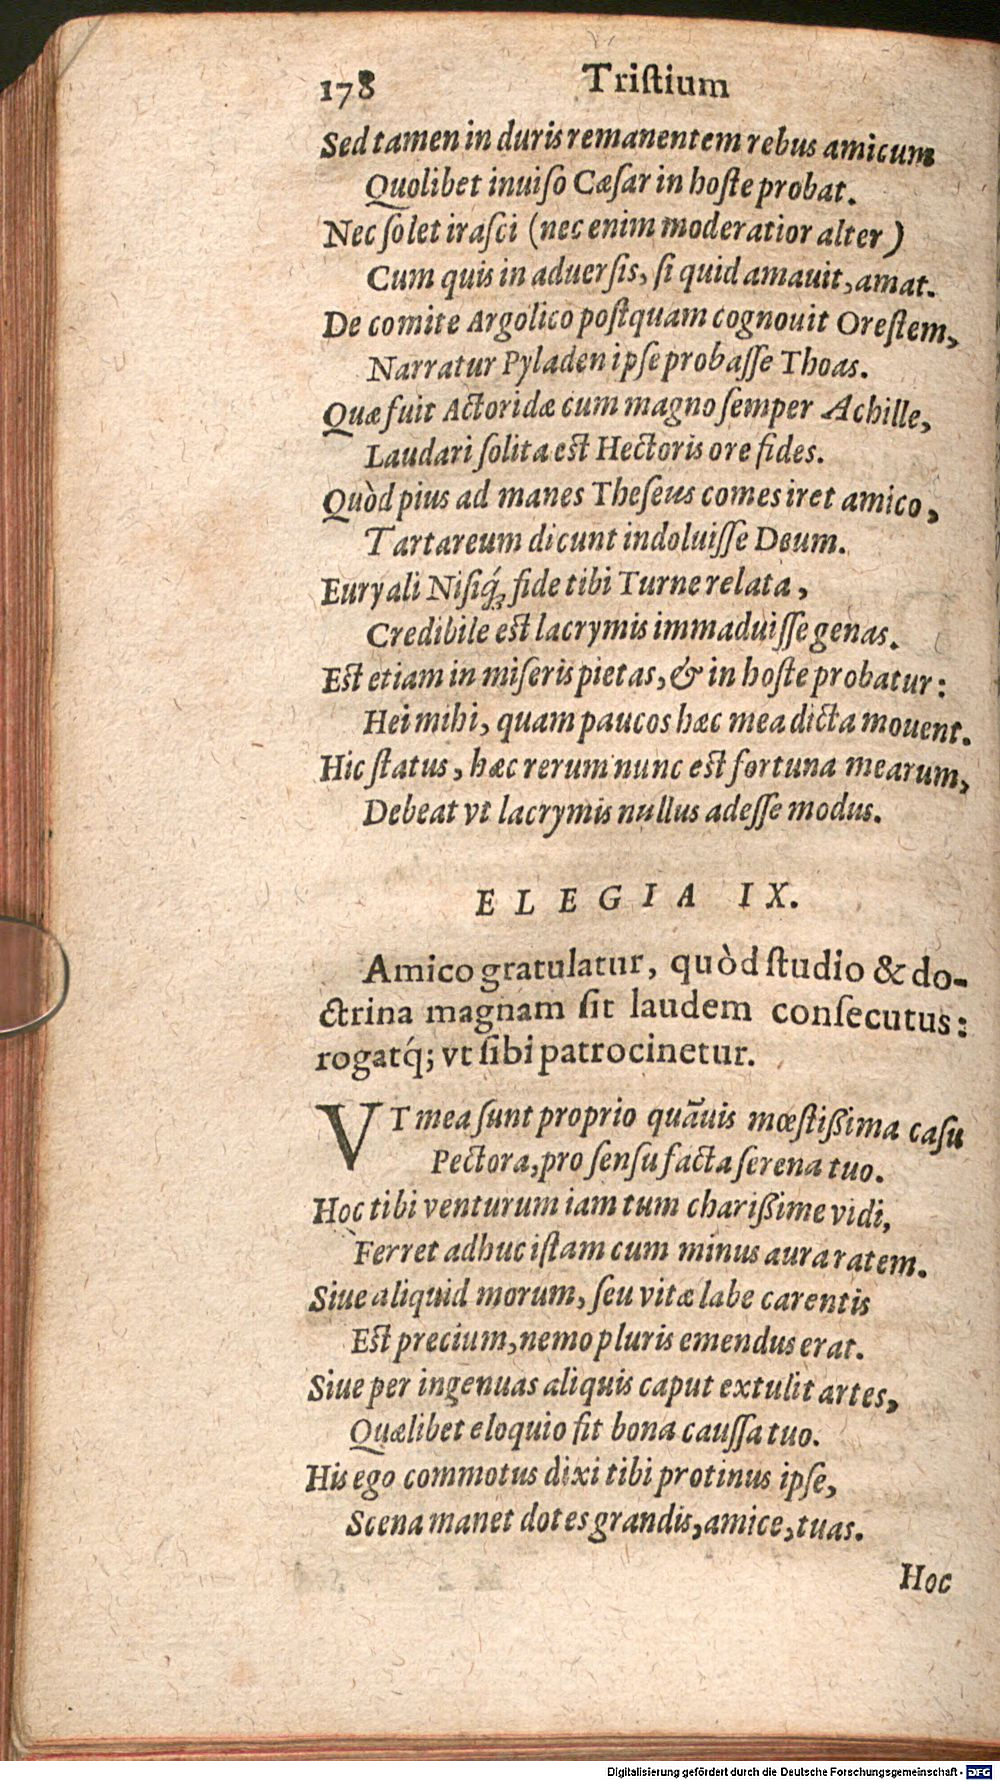 178 Triſtium
Sed tamen in duris remanentem rebus amicum
Quolibet inuiſo Cæſar in hoſte probat.
Nec ſolet iraſci (nec enim moderatior alter)
Cum quis in aduerſis, ſi quid amauit, amat.
De comite Argolico poſtquam cognouit Oreſtem,
Narratur Pyladen ipſe probaſſe Thoas.
Quæ fuit Actoridæ cum magno ſemper Achille,
Laudari ſolita eſt Hectoris ore fides.
Quòd pius ad manes Theſeus comes iret amico,
Tartareum dicunt indoluiſſe Deum.
Euryali Niſiq́; fide tibi Turne relata,
Credibile eſt lacrymis immaduiſſe genas.
Eſt etiam in miſeris pietas, & in hoſte probatur:
Hei mihi, quam paucos hæc mea dicta mouent.
Hic ſtatus, hæc rerum nunc eſt fortuna mearum,
Debeat vt lacrymis nullus adeſſe modus.
ELEGIA IX.
Amico gratulatur, quòd ſtudio & do-
ctrina magnam ſit laudem conſecutus:
rogatq́; vt ſibi patrocinetur.
VT mea ſunt proprio quãuis mœſtißima caſu
Pectora, pro ſenſu facta ſerena tuo.
Hoc tibi venturum iam tum charißime vidi,
Ferret adhuc iſtam cum minus aura ratem.
Siue aliquid morum, ſeu vitæ labe carentis
Eſt precium, nemo pluris emendus erat.
Siue per ingenuas aliquis caput extulit artes,
Quælibet eloquio fit bona cauſſa tuo.
His ego commotus dixi tibi protinus ipſe,
Scena manet dotes grandis, amice, tuas.
Hoc
Digitalisierung gefördert durch die Deutsche Forschungsgemeinschaft - DFG